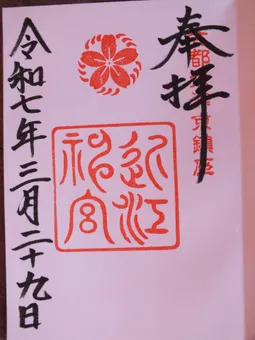 奉拝
都
京鎮座
近江
神宮
令和七年三月二十九日